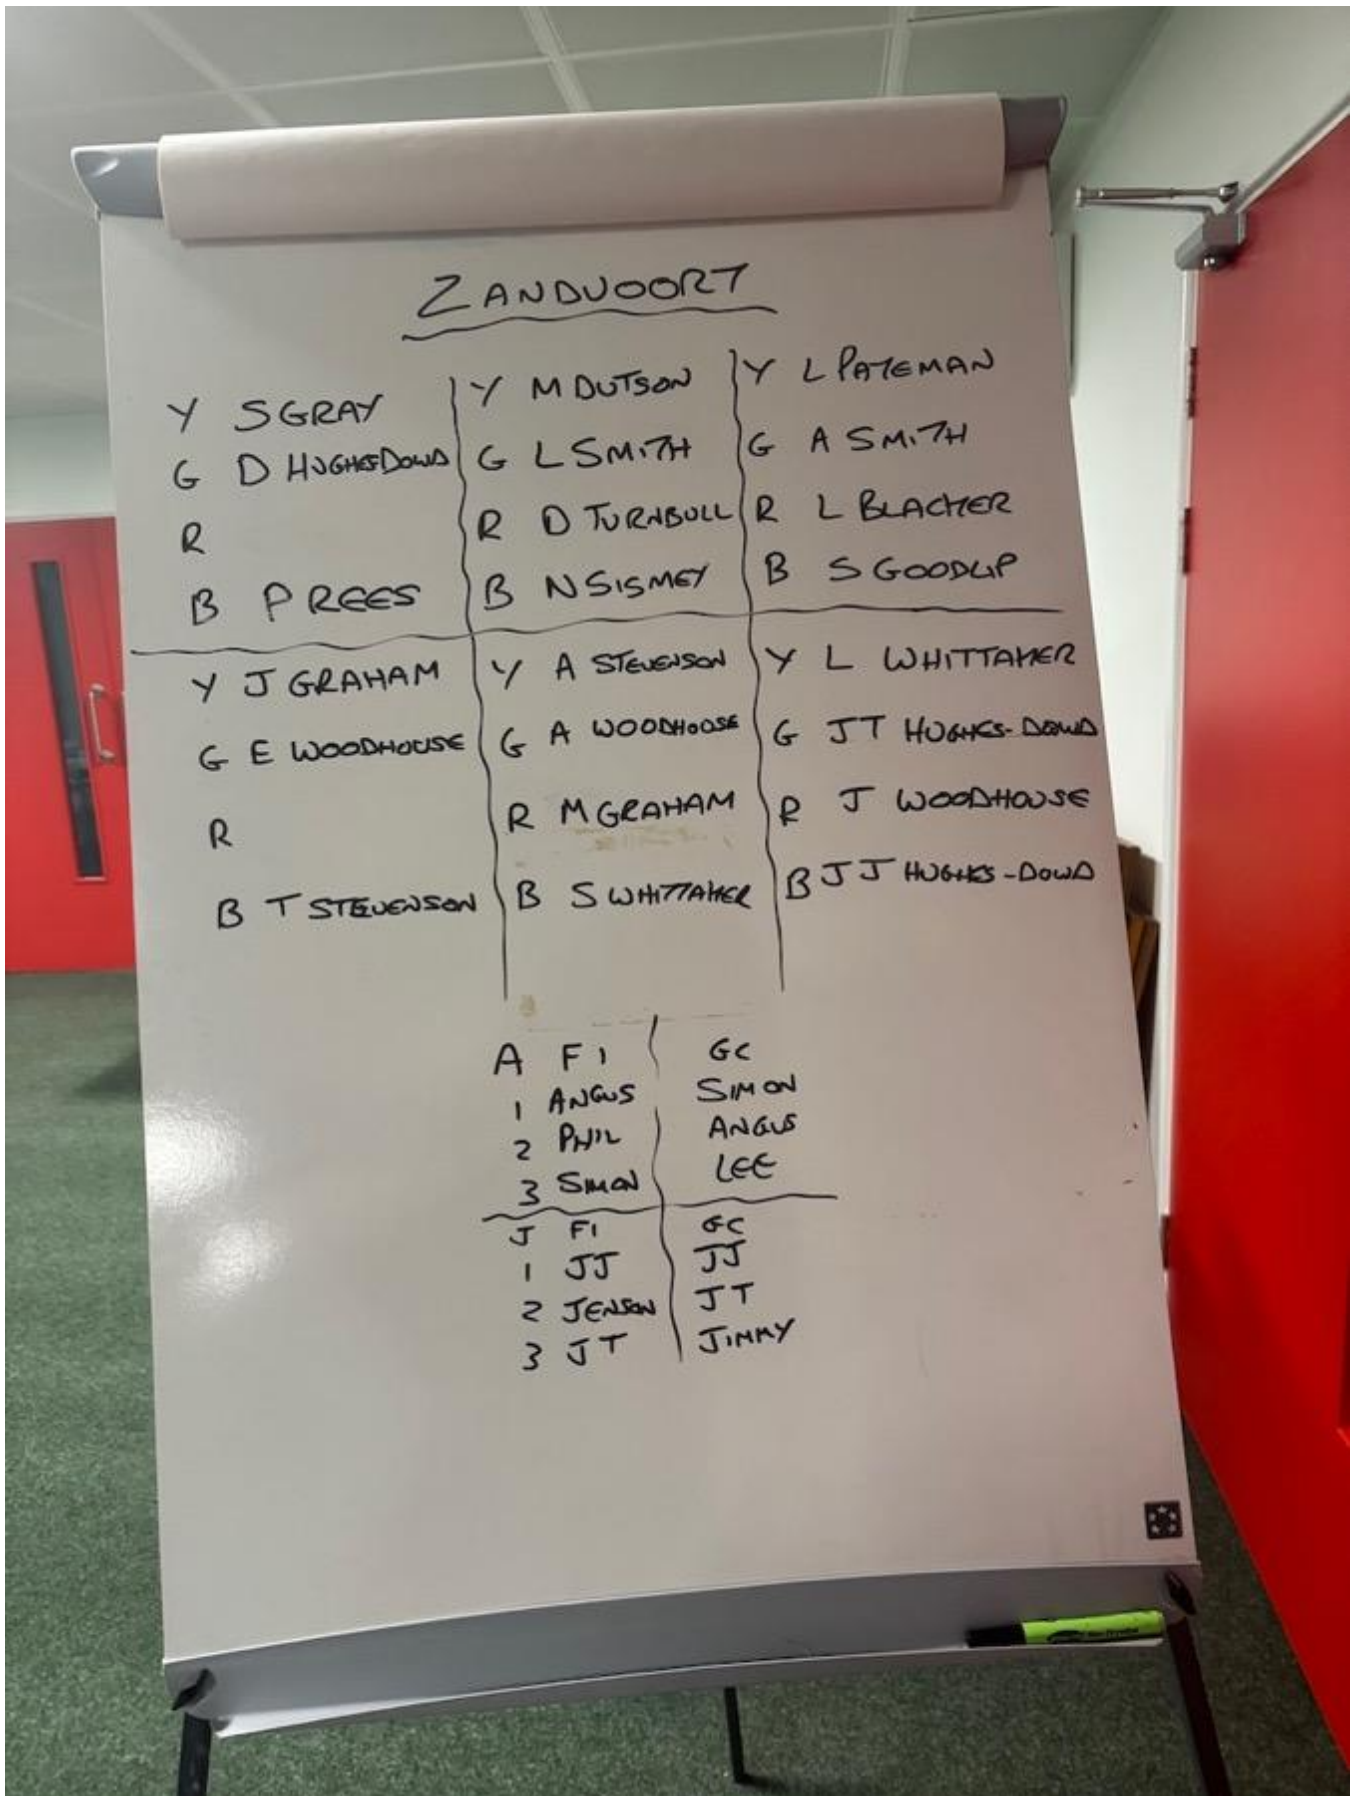 ZANDVOORT
Y S GRAY
G D HUGHES DOWD
R
B P REES
Y M DUTSON
G L SMITH
R D TURNBULL
B N SISMEY
Y L PATEMAN
G A SMITH
R L BLACKER
B S GOODLIP
Y J GRAHAM
G E WOODHOUSE
R
B T STEVENSON
Y A STEVENSON
G A WOODHOUSE
R M GRAHAM
B S WHITTAKER
Y L WHITTAKER
G JT HUGHES-DOWD
R J WOODHOUSE
B JJ HUGHES-DOWD
A F1 GC
1 ANGUS SIMON
2 PHIL ANGUS
3 SIMON LEE
J F1 GC
1 JJ JJ
2 JENSON JT
3 JT JIMMY